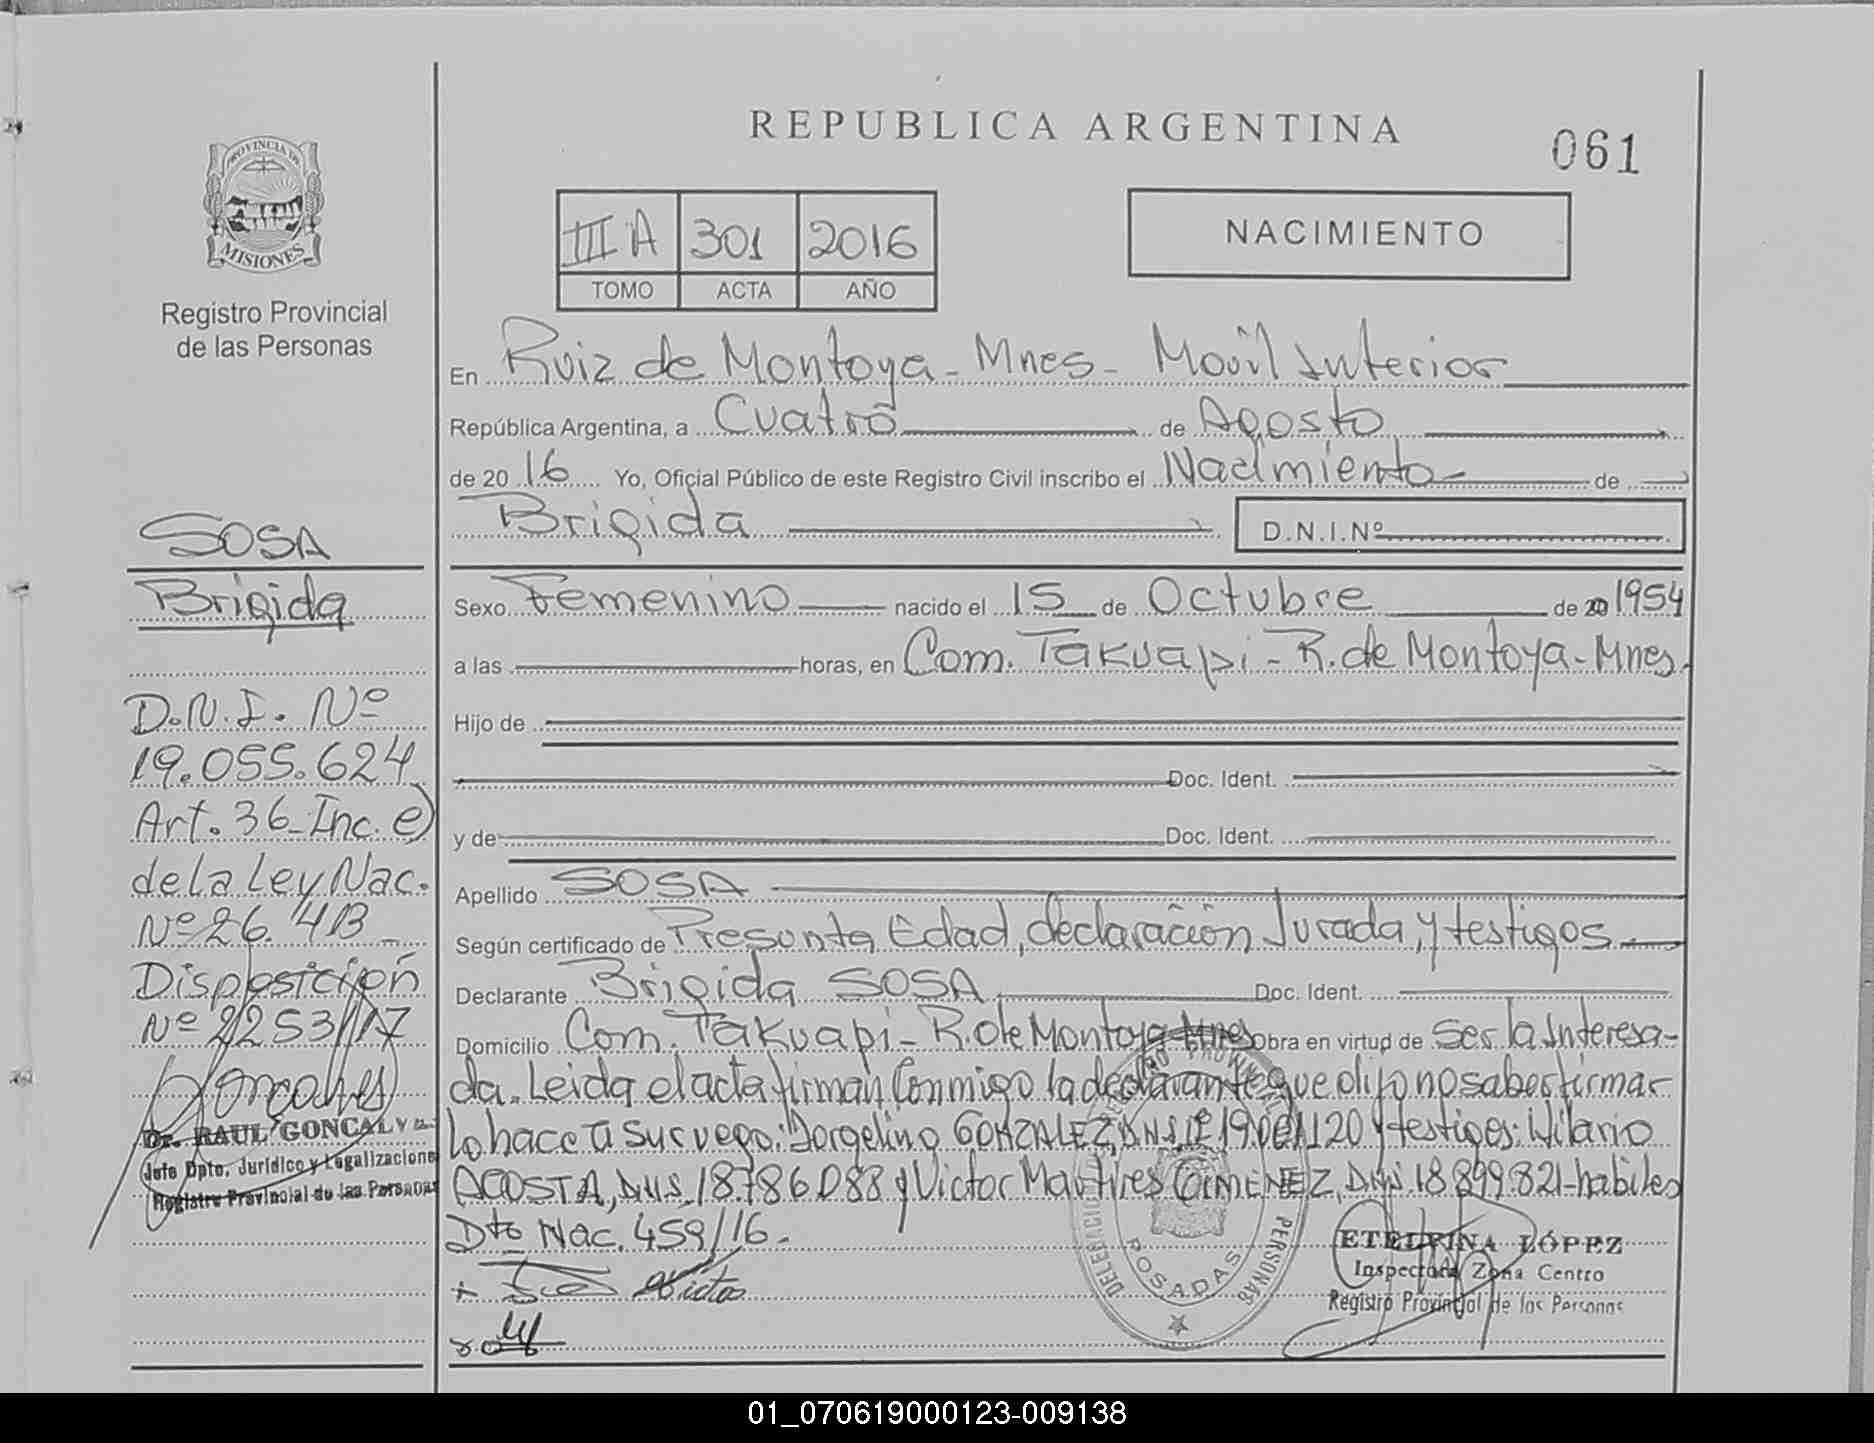 REPUBLICA ARGENTINA
061
PROVINCIA DE
MISIONES
Registro Provincial
de las Personas
III A 301 2016
TOMO ACTA AÑO
NACIMIENTO
En Ruiz de Montoya - Mnes - Movil Interior
República Argentina, a Cuatro de Agosto
de 20 16 Yo, Oficial Público de este Registro Civil inscribo el Nacimiento de
Brigida D.N.I.Nº
Sexo Femenino nacido el 15 de Octubre de 20 1954
a las horas, en Com. Takuapi - R. de Montoya - Mnes.
Hijo de
Doc. Ident.
y de Doc. Ident.
Apellido SOSA
Según certificado de Presunta Edad, declaración Jurada, y testigos
Declarante Brigida SOSA Doc. Ident.
Domicilio Com. Takuapi - R. de Montoya - Mnes Obra en virtud de Ser la Interesa-
da. Leida el acta firman Conmigo la declarante que dijo no saber firmar
lo hace a su ruego: Jorgelino GONZALEZ, DNI. Nº 19.001.120 y testigos: Hilario
ACOSTA, DNI. 18.786.088 y Victor Martires GIMENEZ, DNI. 18.899.821 - habiles
Dto Nac. 459/16.
SOSA
Brigida
D.N.I. Nº
19.055.624
Art. 36 - Inc. e)
de la Ley Nac.
Nº 26.413
Disposición
Nº 2253/17
Dr. RAUL GONCALV
Jefe Dpto. Jurídico y Legalizacione
Registro Provincial de las Personas
POSADAS
ETELVINA LÓPEZ
Inspectora Zona Centro
Registro Provincial de las Personas
01_070619000123-009138